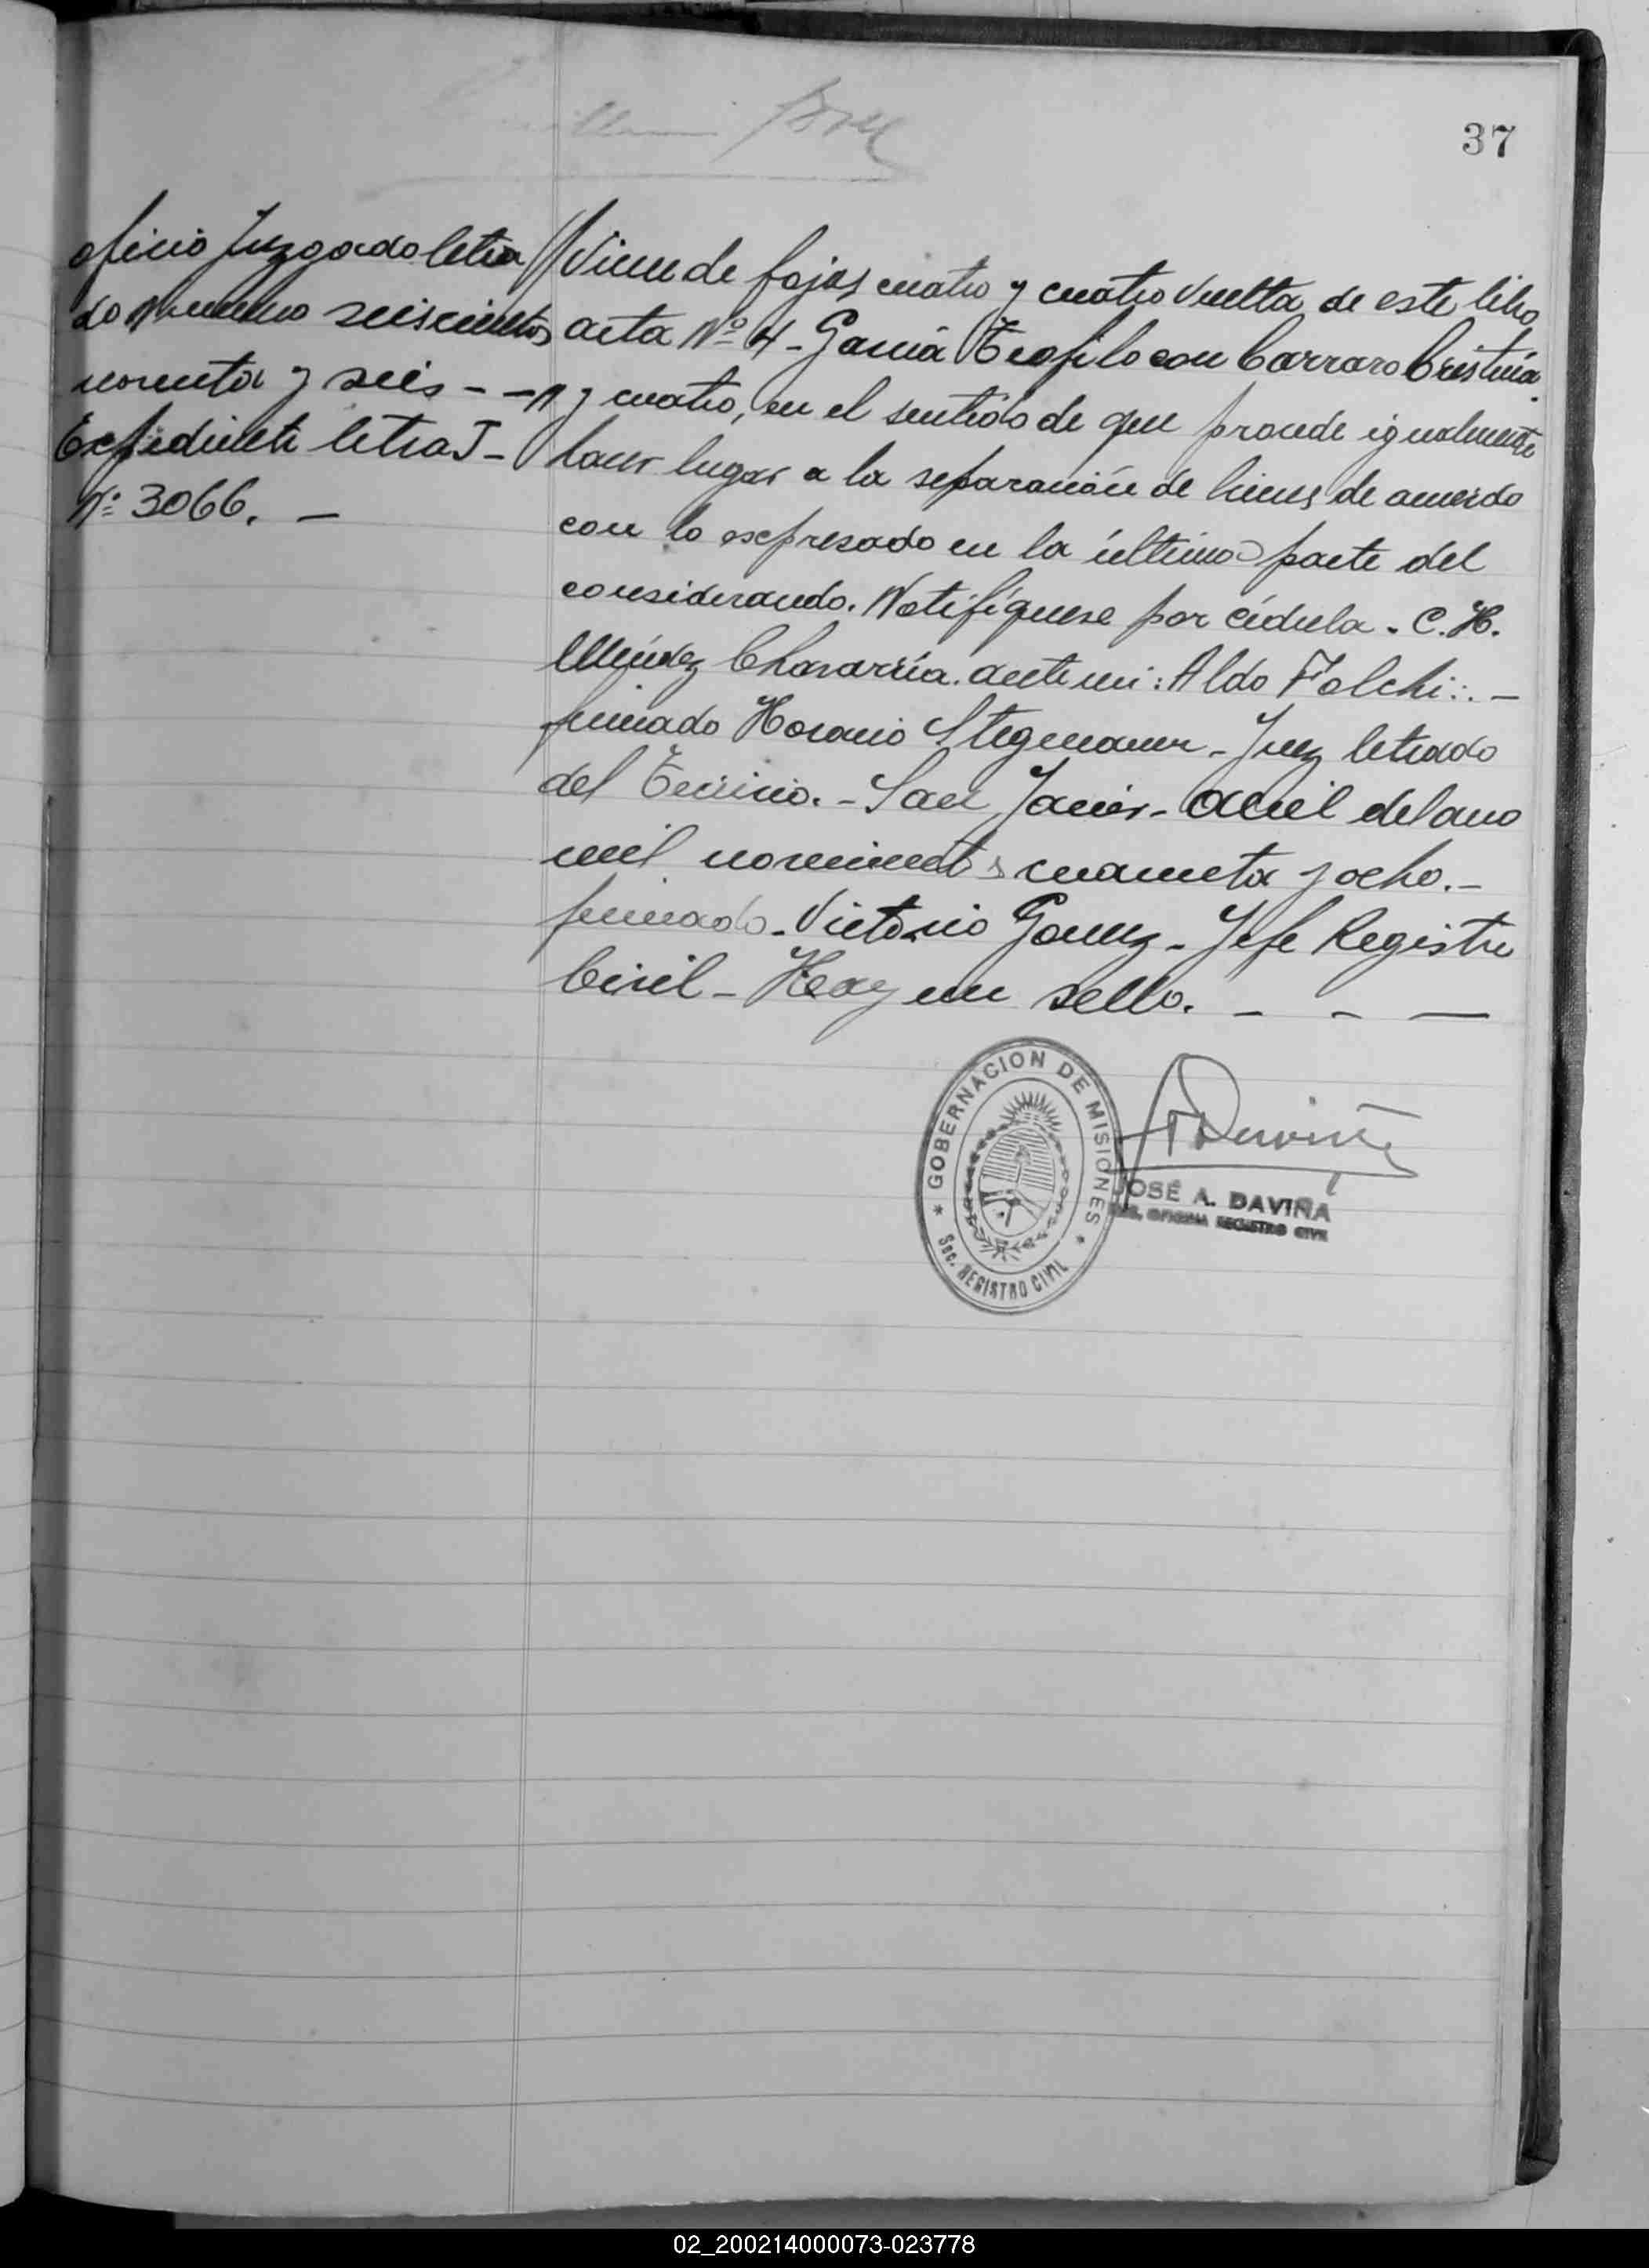 37
oficio Juzgado letra
do Numero seiscientos
noventa y seis - -
Expediente letra J -
Nº 3066. -
//Viene de fojas cuatro y cuatro vuelta de este libro
acta Nº 4 - Garcia Teofilo con Carraro Cristina.
y cuatro, en el sentido de que procede igualmente
hacer lugar a la separación de bienes de acuerdo
con lo expresado en la última parte del
considerando. Notifíquese por cédula. C. H.
Méndez Chavarría. ante mi: Aldo Folchi:. -
firmado Horacio Stegmann - Juez letrado
del Territorio. - San Javier - Abril del ano
mil novecientos cuarenta y ocho. -
firmado. Victorio Gomez - Jefe Registro
Civil - Hay un sello. - - -
* GOBERNACION DE MISIONES *
Sec. REGISTRO CIVIL
JOSÉ A. DAVIÑA
OFICINA REGISTRO CIVIL
02_200214000073-023778